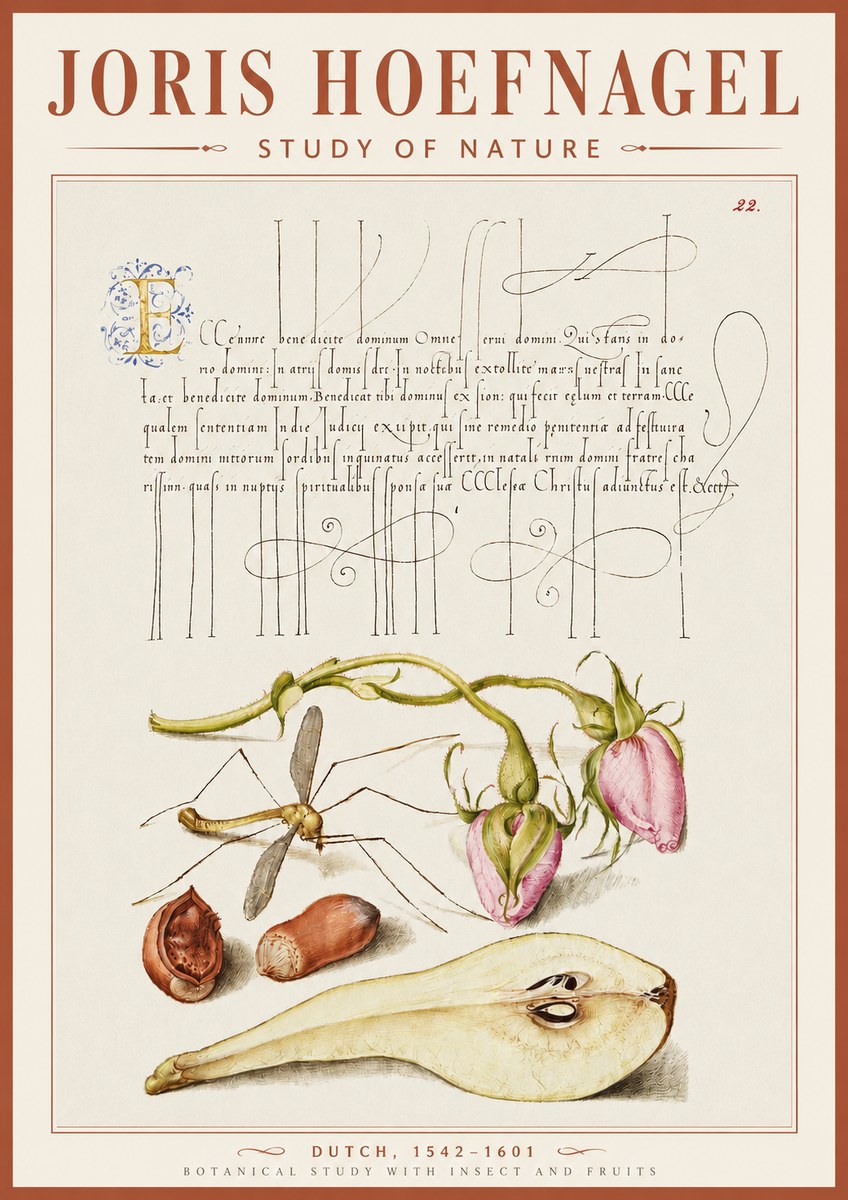 JORIS HOEFNAGEL
STUDY OF NATURE
22.
E
bene dicite dominum Omne serui domini. Qui stans in do-
rio domini: In atrijs domis In noctibus extollite In sanc
ta: et benedicite dominum. Benedicat tibi dominus ex sion: qui fecit cęlum et terram.
qualem sententiam In die Judicij qui sine remedio penitentiæ ad
tem domini sordibus inquinatus in natali domini fratres cha
quasi in nuptijs spiritualibus sponsæ suæ Christus adiunctus est.
DUTCH, 1542–1601
BOTANICAL STUDY WITH INSECT AND FRUITS